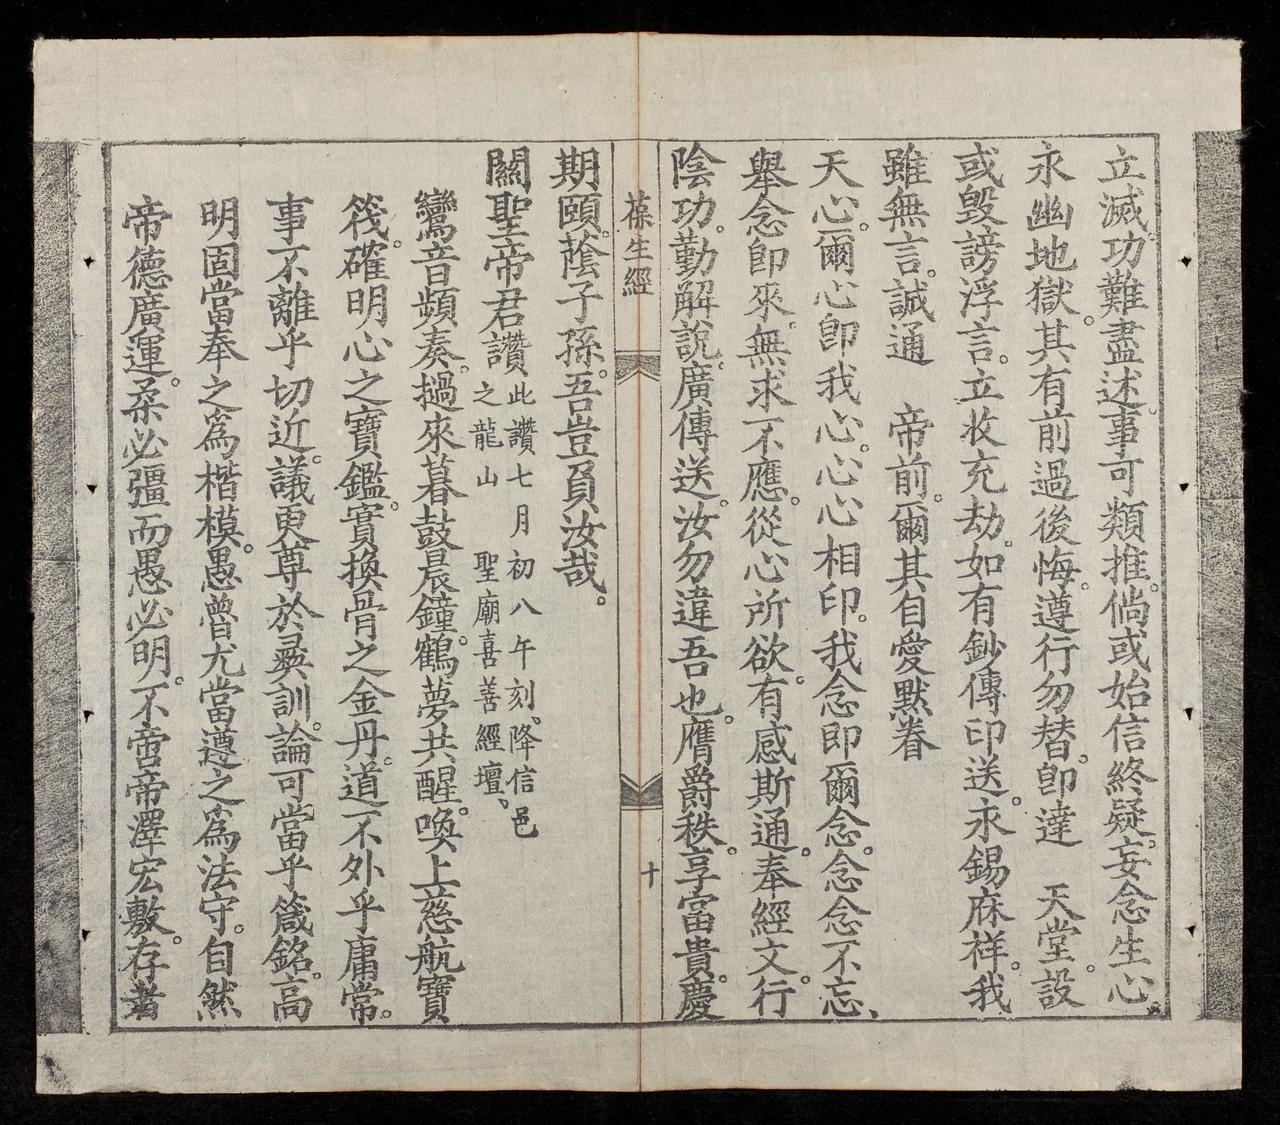 立滅功難盡述。事可類推。倘或始信終疑。妄念生心
永幽地獄。其有前過後悔。遵行勿替。卽達　天堂。設
或毀謗浮言。立收充劫。如有鈔傳印送。永錫庥祥。我
雖無言。誠通　帝前。爾其自愛默眷
天心。爾心卽我心。心心相印。我念卽爾念。念念不忘、
舉念卽來。無求不應。從心所欲。有感斯通。奉經文。行
陰功。勤解說。廣傳送。汝勿違吾也。膺爵秩。享富貴。慶
葆生經
十
期頤。蔭子孫。吾豈負汝哉。
關聖帝君讚
此讚七月初八午刻、降信邑
之龍山　聖廟喜善經壇、
鸞音頻奏。撾來暮鼓晨鐘。鶴夢共醒。喚上慈航寶
筏。確明心之寶鑑。實換骨之金丹。道不外乎庸常。
事不離乎切近。議更尊於彝訓。論可當乎箴銘。高
明固當奉之爲楷模。愚曾尤當遵之爲法守。自然
帝德廣運。柔必彊而愚必明。不啻帝澤宏敷。存者